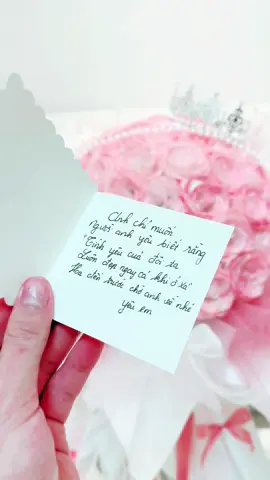 Anh chỉ muốn
người anh yêu biết rằng
Tình yêu của đôi ta
Luôn đẹp ngay cả khi ở xa
Hoa đến trước chờ anh về nhé
Yêu em